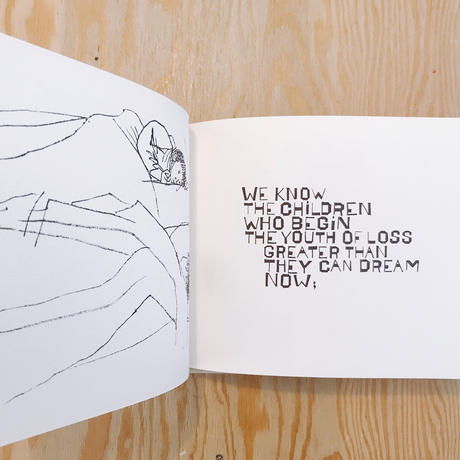 WE KNOW
THE CHiLDREN
WHO BEGiN
THE YOUTH OF LOSS
GREATER THAN
THEY CAN DREAM
NOW;